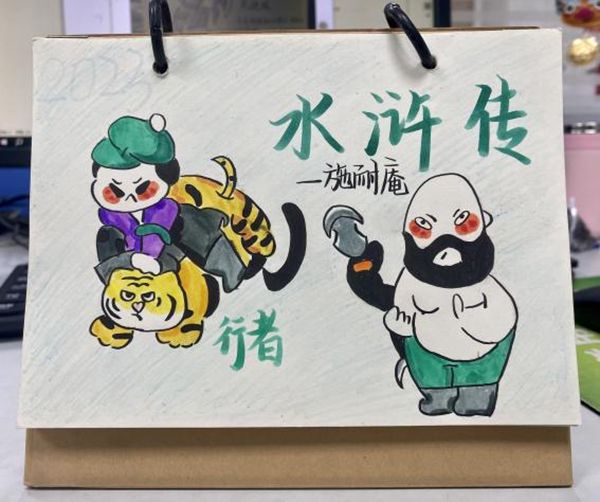 2023
水浒传
—施耐庵
行者